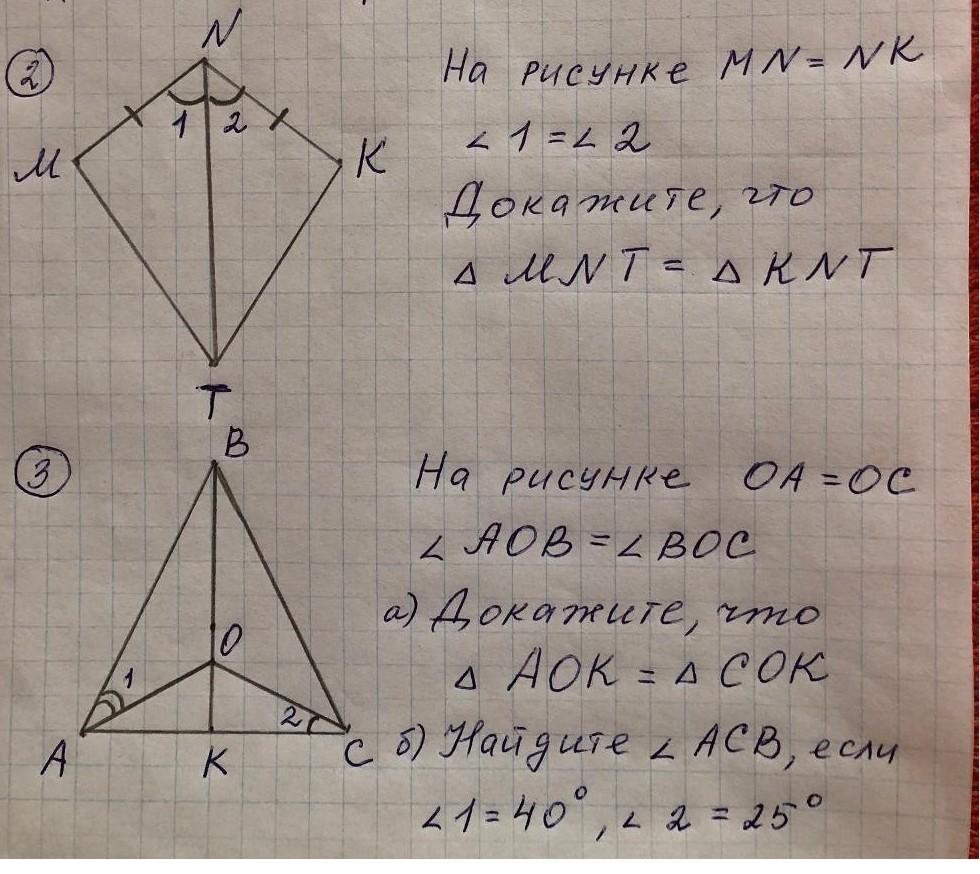 ②
N
1 2
M
K
T
На рисунке MN = NK
∠ 1 = ∠ 2
Докажите, что
△ MNT = △ KNT
③
B
O
1
2
A
K
C
На рисунке OA = OC
∠ AOB = ∠ BOC
а) Докажите, что
△ AOK = △ COK
б) Найдите ∠ ACB, если
∠ 1 = 40°, ∠ 2 = 25°